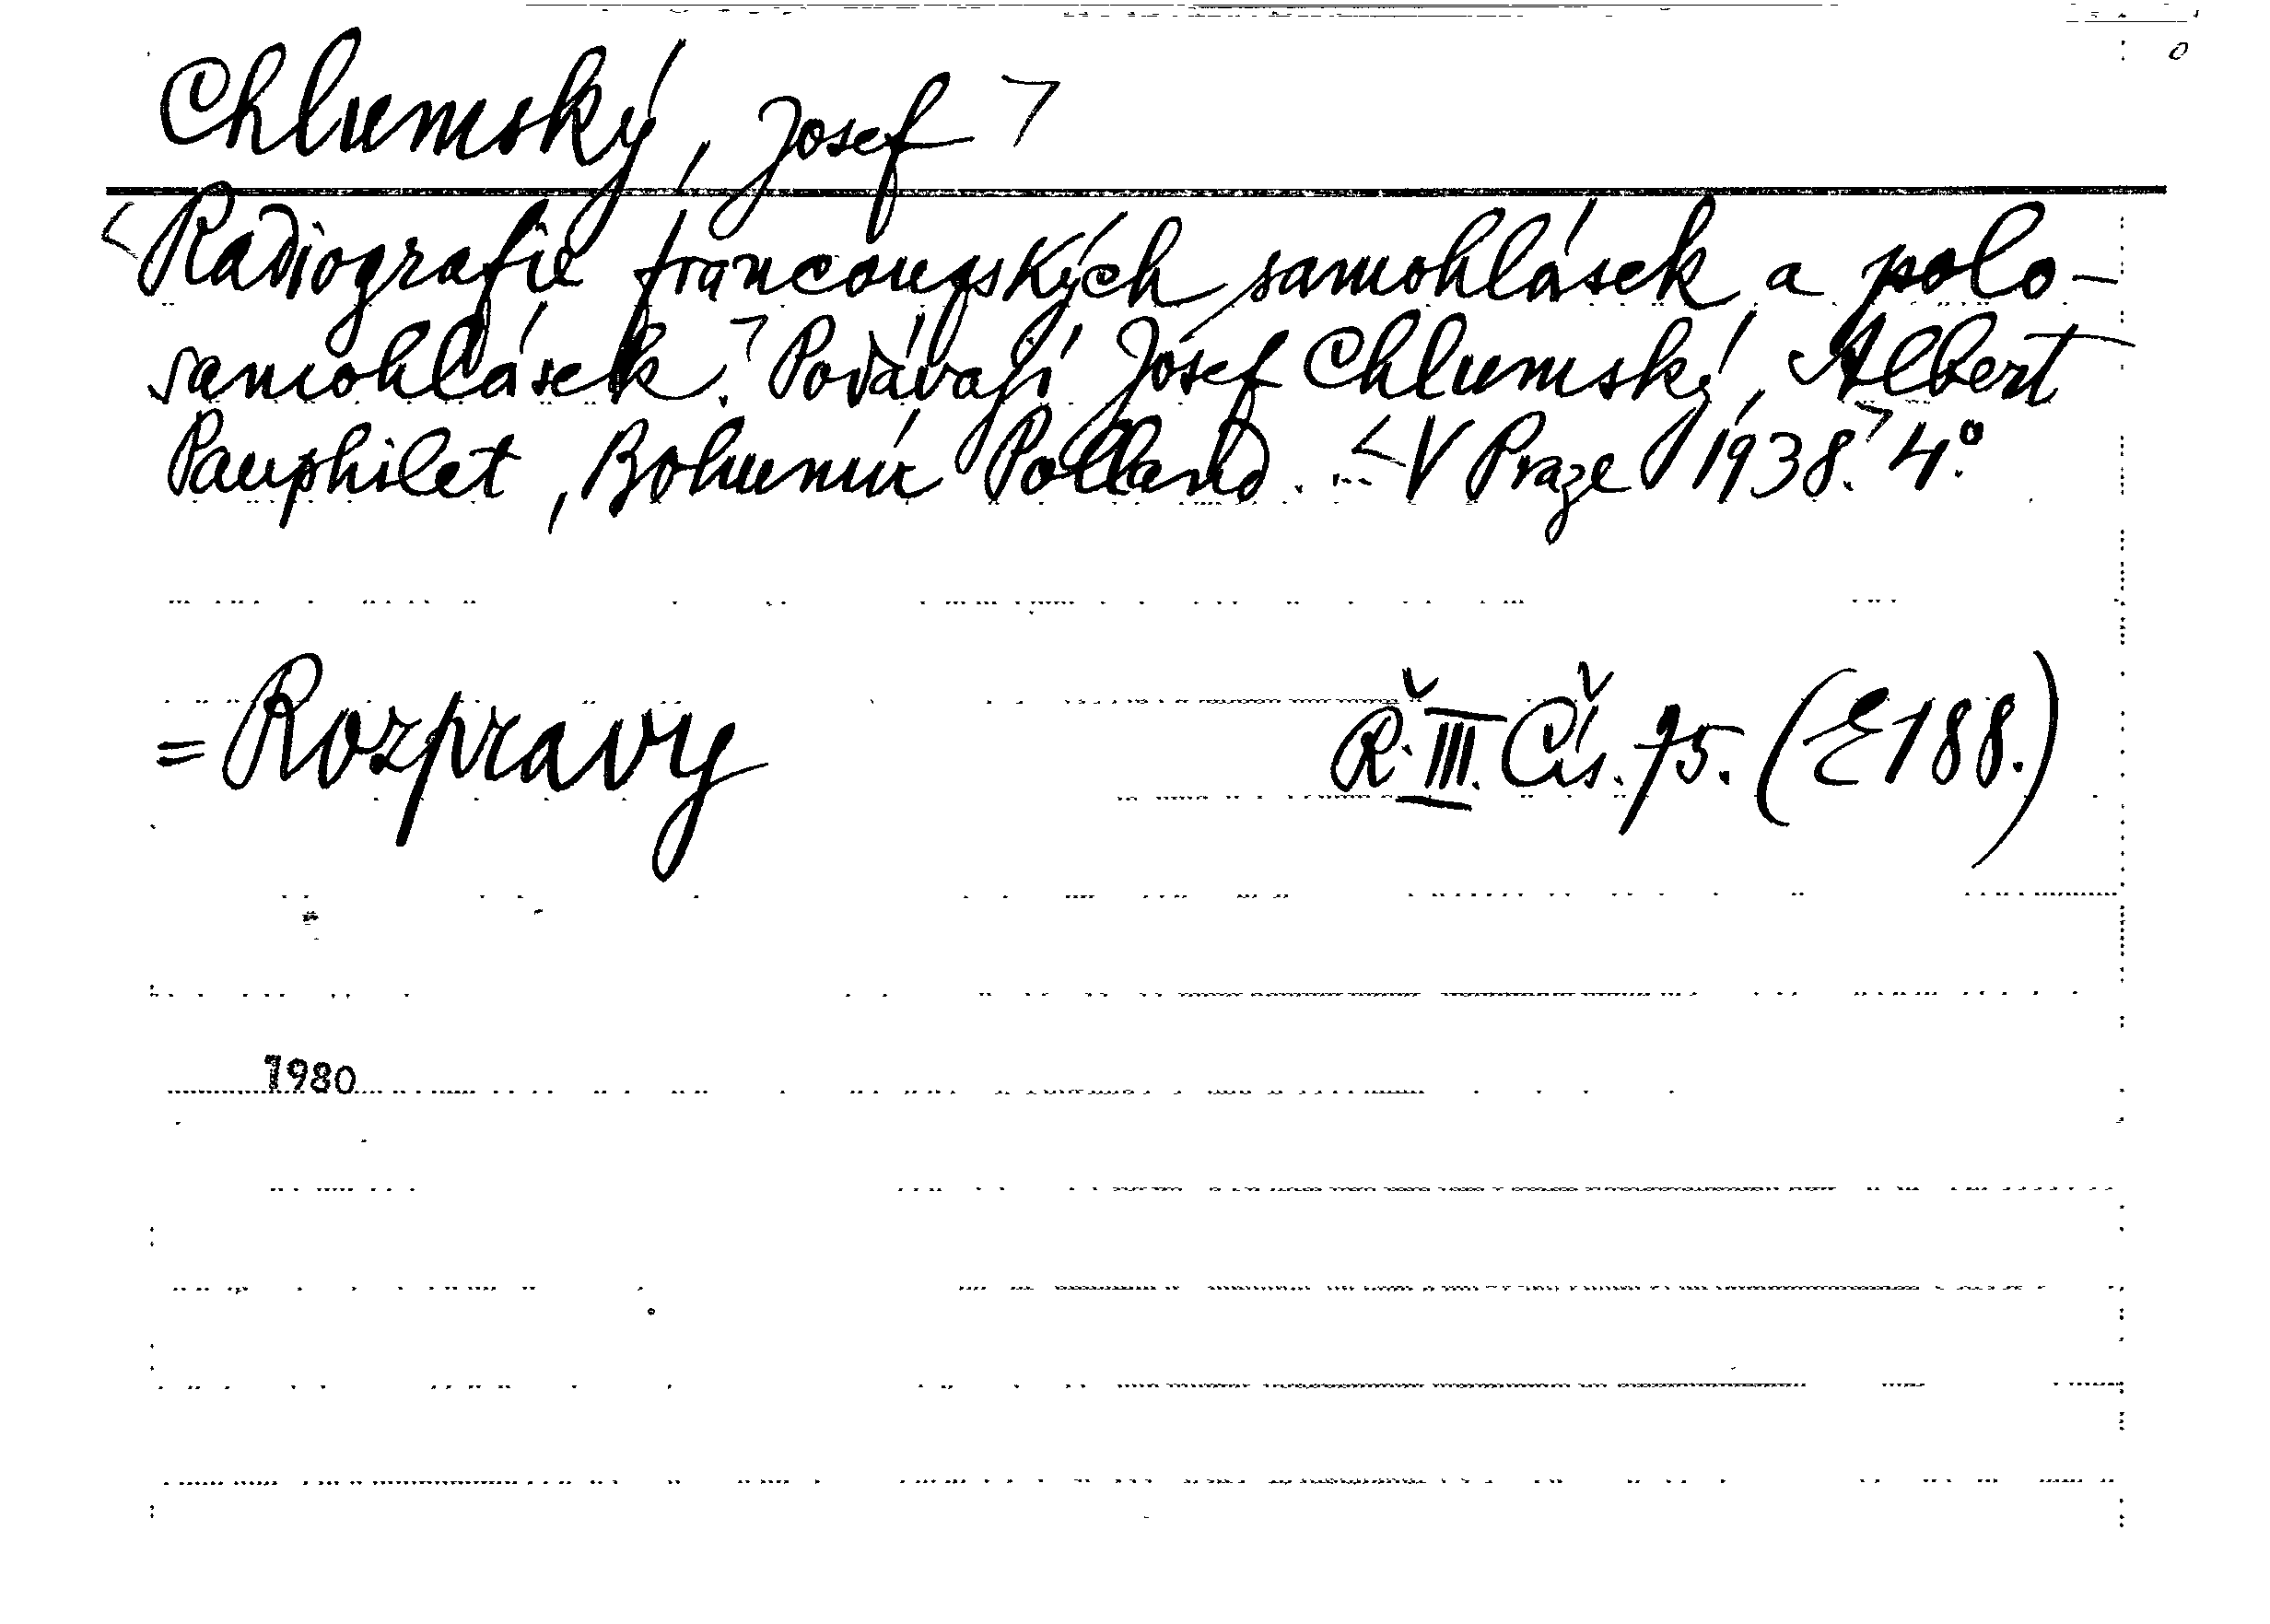 Chlumský, Josef ⌝
<Radiografie francouzských samohlásek a polo-
samohlásek.⌝ Podávají Josef Chlumský, Albert
Pauphilet, Bohumír Polland. <V Praze 1938.⌝ 4°.
= Rozpravy Ř. III. Čís. 75. (E 188.)
1980